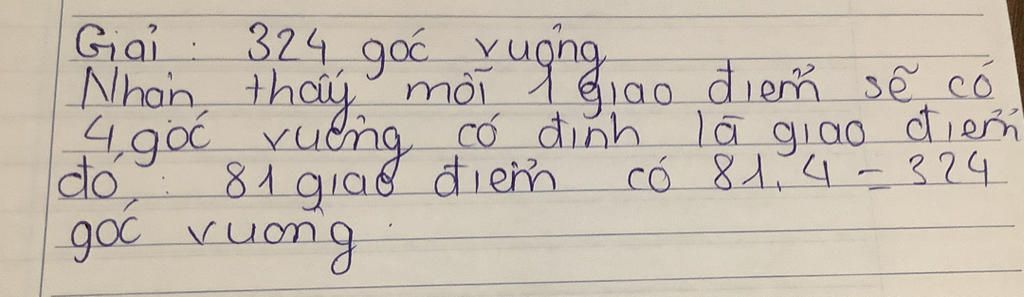 Giải: 324 góc vuông
Nhận thấy mỗi 1 giao điểm sẽ có
4 góc vuông có đỉnh là giao điểm
đó: 81 giao điểm có 81.4 = 324
góc vuông.